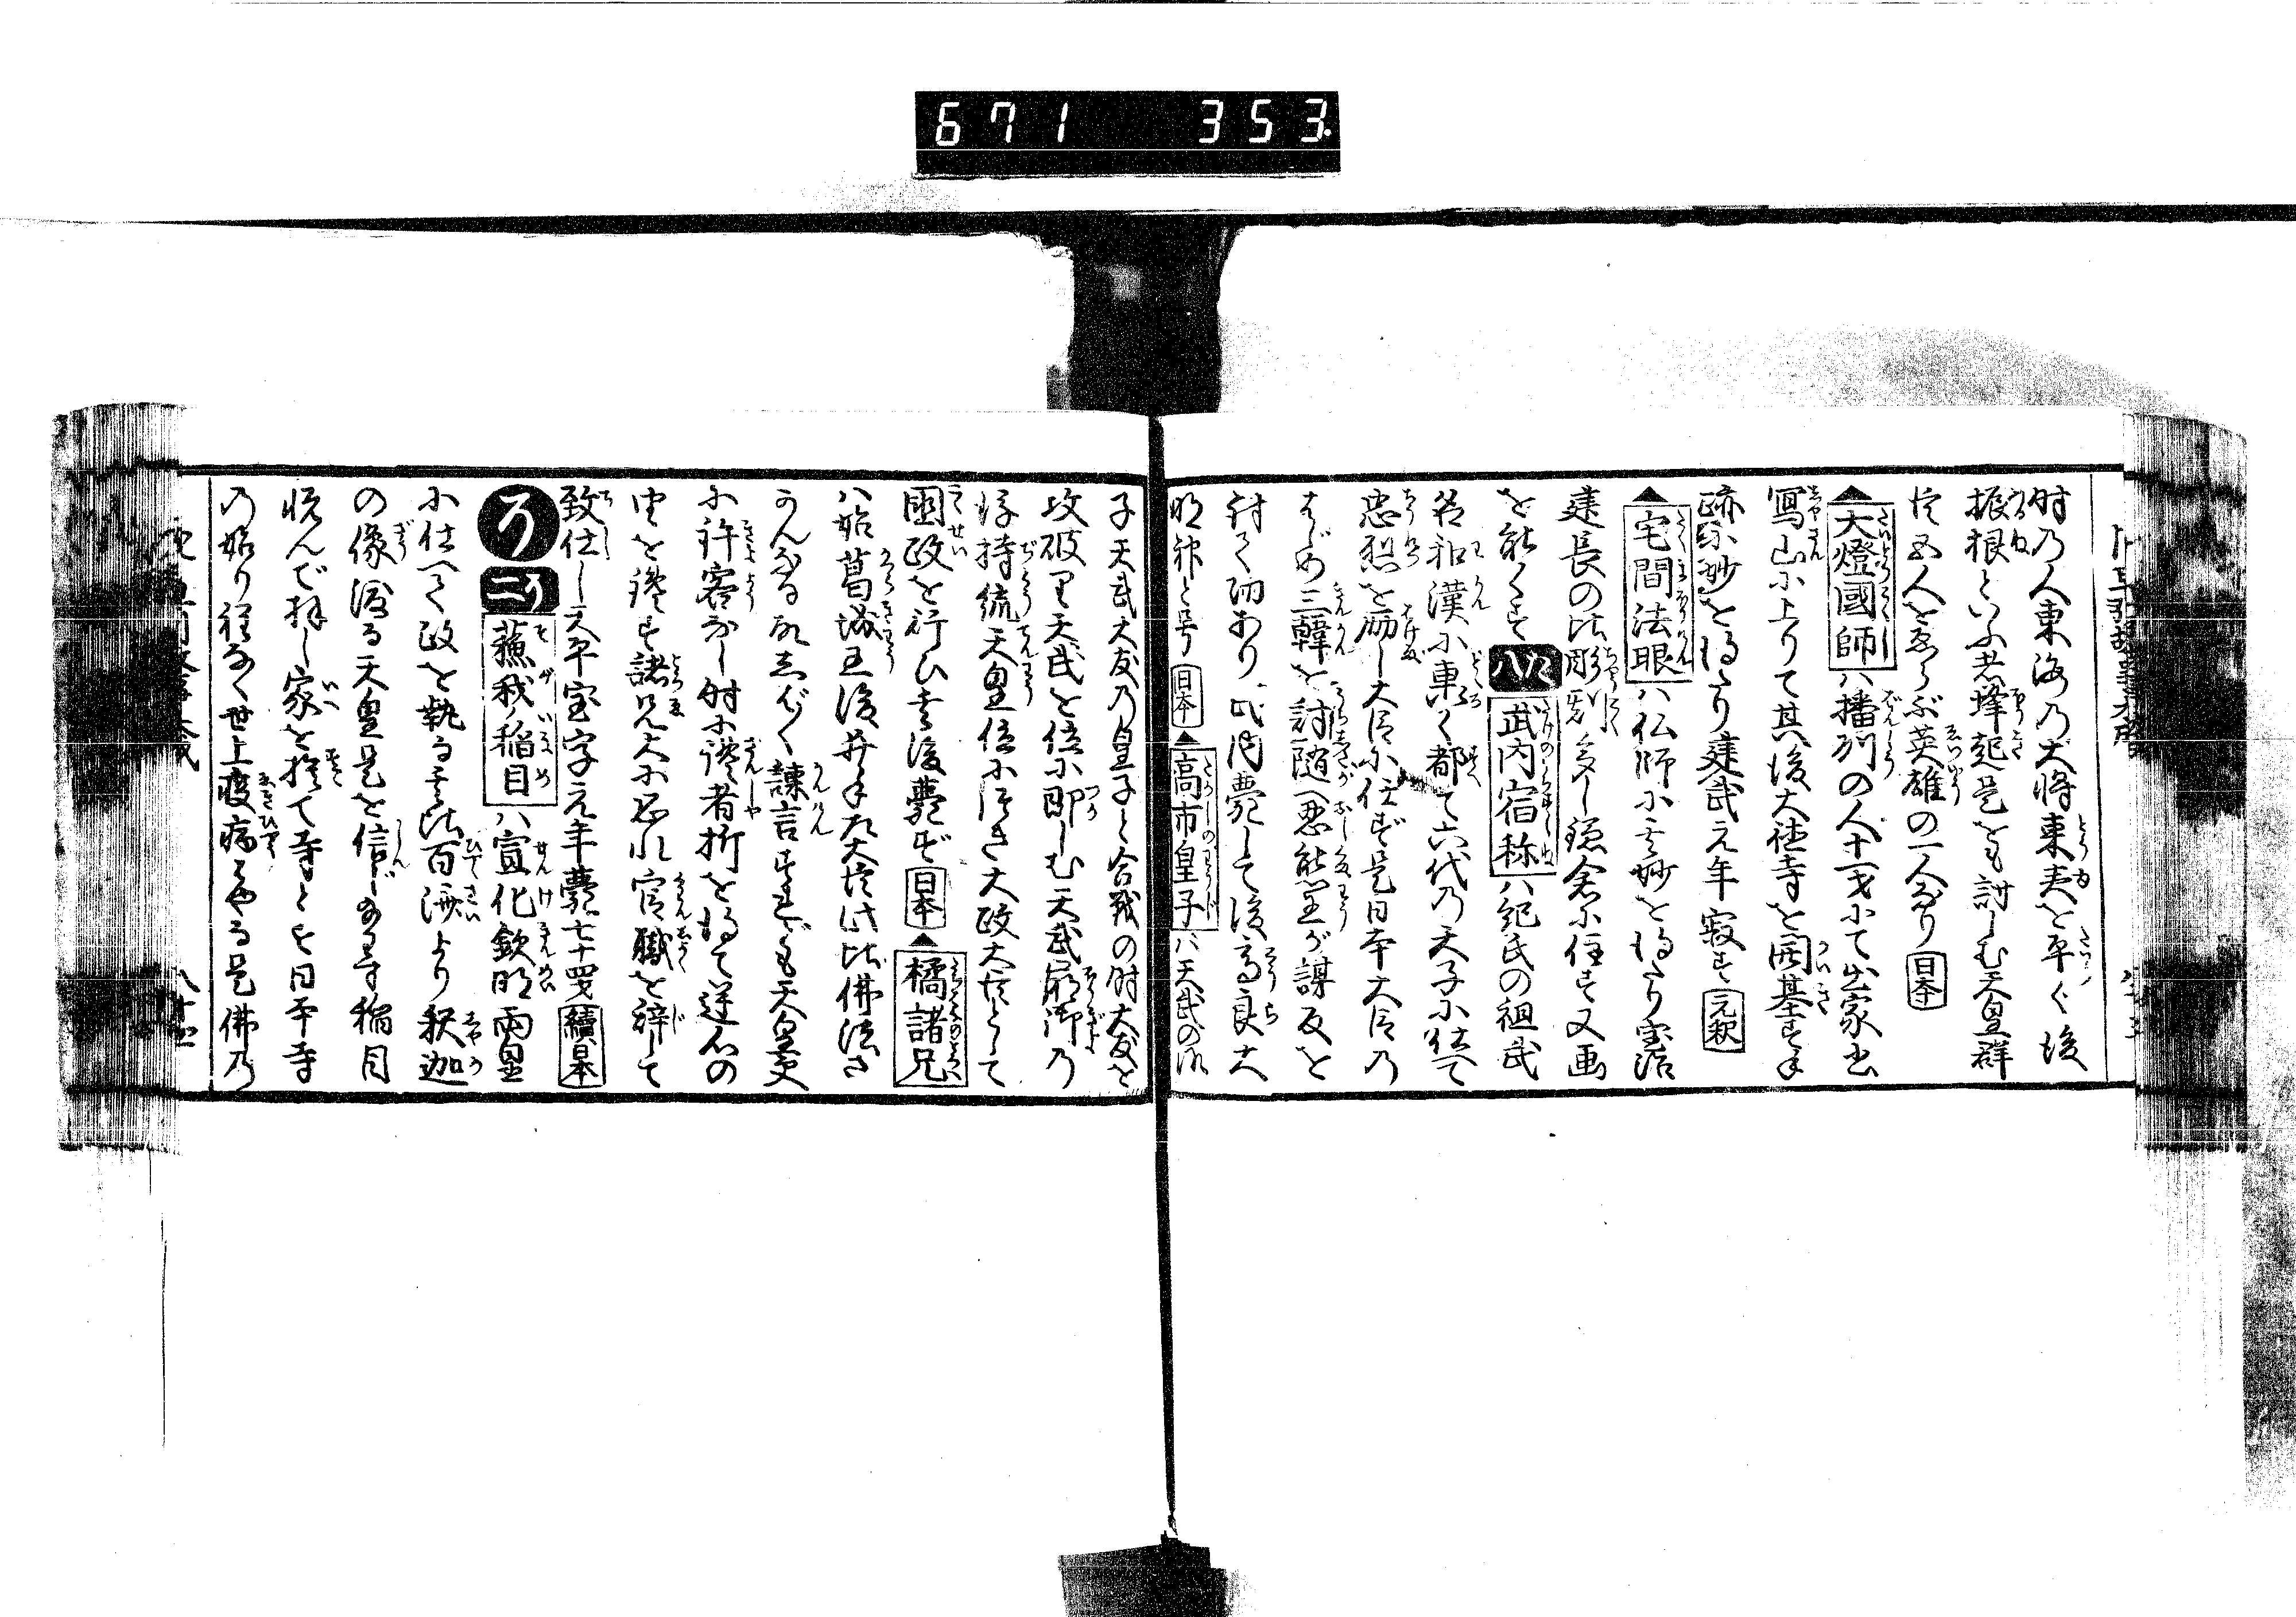 671 353.
時乃人東海乃大将東夷を平ぐ後
振根といふ者蜂起是をも討しむ天皇群
臣五人をゑらぶ英雄の一人なり 日本
▲大燈國師ハ播州の人十一才にて出家出
寫山に上りて其後大徳寺を開基す手
跡妙を得たり建武元年寂す 元釈
▲宅間法眼ハ仏師に妙を得たり宝治
建長の比彫刻多し鎌倉に住す又画
を能くす 八 武内宿祢ハ紀氏の祖武
名和漢に轟く都て六代乃天子に仕て
忠烈を励し大臣に任ず是日本大臣乃
はじめ三韓を討随へ忍熊王が謀反を
討て功あり此内薨して後高良大
明神と号 日本 ▲高市皇子ハ天武の御
子天武大友乃皇子と合戦の時大友を
攻破り天武を位に即しむ天武崩御乃
後持統天皇位に即き大政大臣として
國政を行ひ其後薨ず 日本 ▲橘諸兄
ハ始葛城王後井手左大臣此比佛法さ
かんなる故しばしば諫言すれども天皇更
に許容なし時に讒者折を得て逆心の
由を讒す諸兄大に恐れ官職を辞して
致仕し天平宝字元年薨七十四才 續日本
そ 二 蘓我ノ稲目ハ宣化欽明両皇
に仕へて政を執る其比百済より釈迦
の像渡る天皇是を信じ給ふ稲目
悦んで拝し家を捨て寺とす日本寺
乃始り程なく世上疫病はやる是佛乃